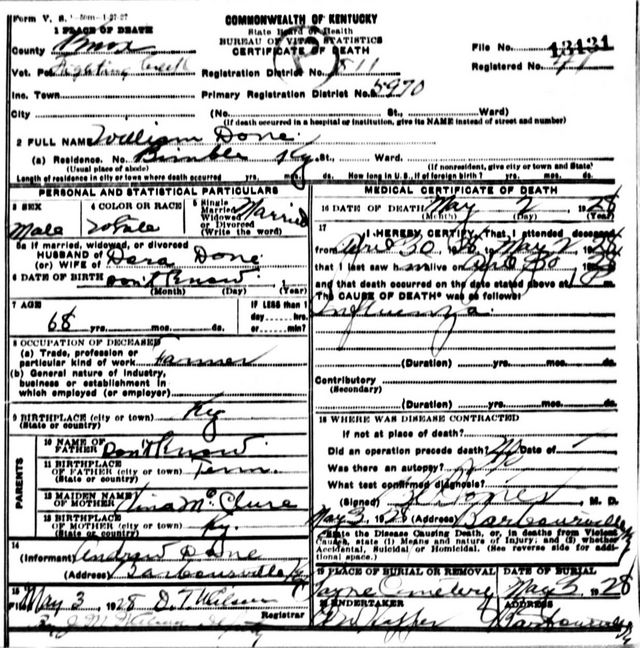 Form V. S.
COMMONWEALTH OF KENTUCKY
State Board of Health
BUREAU OF VITAL STATISTICS
CERTIFICATE OF DEATH
1 PLACE OF DEATH
County Knox
Vot. Pct Fighting Creek
Inc. Town
City
File No. 13131
Registered No.
Registration District No. 511
Primary Registration District No. 5970
(No. St., Ward)
(If death occurred in a hospital or institution, give its NAME instead of street and number)
2 FULL NAME William Done
(a) Residence. No. Bimble Ky St., Ward.
(Usual place of abode) (If nonresident, give city or town and State)
Length of residence in city or town where death occurred yrs. mos. ds. How long in U.S., if of foreign birth? yrs. mos. ds.
PERSONAL AND STATISTICAL PARTICULARS
3 SEX Male
4 COLOR OR RACE White
5 Single Married Widowed or Divorced (Write the word) Married
5a If married, widowed, or divorced
HUSBAND of
(or) WIFE of Dora Done
6 DATE OF BIRTH Don't Know
(Month) (Day) (Year)
7 AGE 68 yrs. mos. ds.
IF LESS than 1 day hrs. or min?
8 OCCUPATION OF DECEASED
(a) Trade, profession or particular kind of work Farmer
(b) General nature of industry, business or establishment in which employed (or employer)
9 BIRTHPLACE (city or town) Ky
(State or country)
PARENTS
10 NAME OF FATHER Don't Know
11 BIRTHPLACE OF FATHER (city or town) Tenn.
(State or country)
12 MAIDEN NAME OF MOTHER McClure
13 BIRTHPLACE OF MOTHER (city or town) Ky.
(State or country)
14
(Informant) Andrew Done
(Address) Barbourville Ky
15
Filed May 3, 1928 D. T. Wilson
Registrar
MEDICAL CERTIFICATE OF DEATH
16 DATE OF DEATH May 2 1928
(Month) (Day) (Year)
17
I HEREBY CERTIFY, That I attended deceased
from April 30, 28, May 2, 1928
that I last saw him alive on April 30, 1928
and that death occurred on the date stated above at m.
The CAUSE OF DEATH* was as follows:
Influenza
(Duration) yrs. mos. ds.
Contributory
(Secondary)
(Duration) yrs. mos. ds.
18 WHERE WAS DISEASE CONTRACTED
If not at place of death?
Did an operation precede death? No Date of
Was there an autopsy?
What test confirmed diagnosis?
(Signed) Jones M. D.
May 3, 1928 (Address) Barbourville Ky
*State the Disease Causing Death, or, in deaths from Violent Causes, state (1) Means and nature of Injury; and (2) whether Accidental, Suicidal or Homicidal. (See reverse side for additional space.)
19 PLACE OF BURIAL OR REMOVAL DATE OF BURIAL
Payne Cemetery May 3, 1928
20 UNDERTAKER ADDRESS
Barbourville Ky